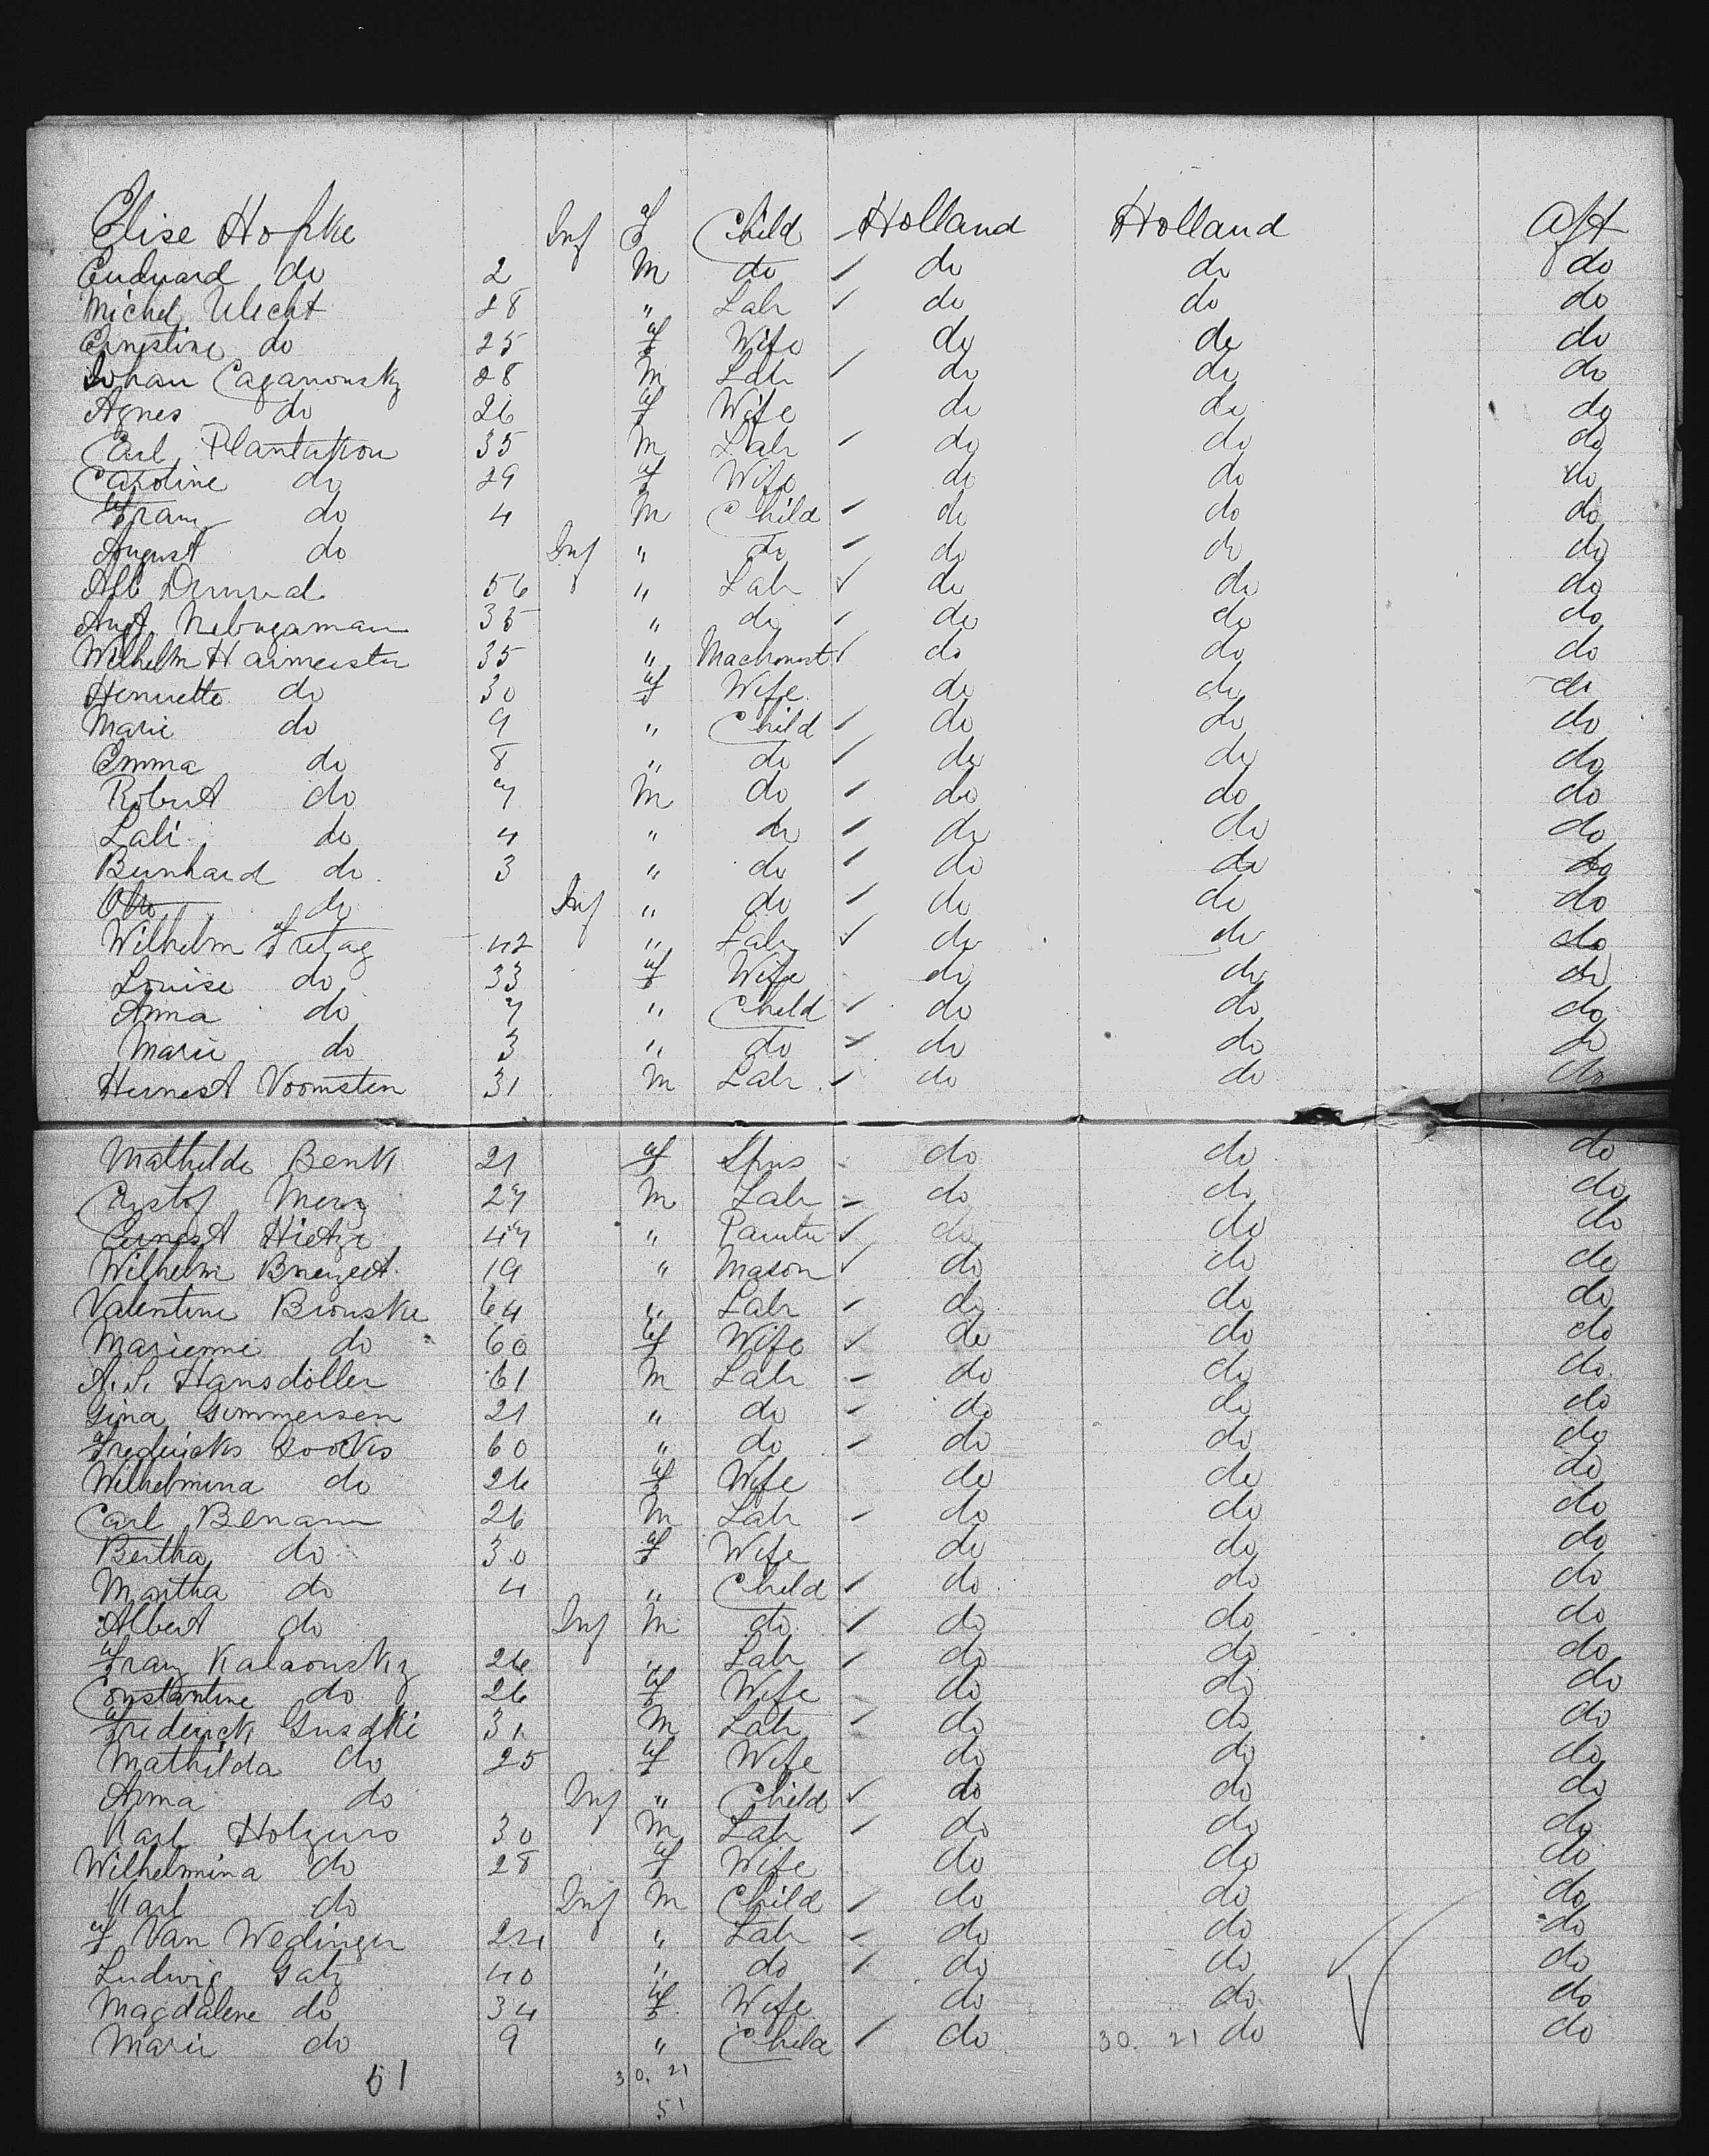 Elise Hopke Inf F Child Holland Holland Aft
Eduard do 2 M do do do do
Michel Ulecht 28 " Labr do do do
Ernestine do 25 F Wife do do do
Johan Caganousky 28 M Labr do do do
Agnes do 26 F Wife do do do
Carl Plantakou 35 M Labr do do do
Caroline do 29 F Wife do do do
Franz do 4 M Child do do do
August do Inf " do do do do
Alb 56 " Labr do do do
Augt Nebugaman 35 " do do do do
Wilhelm Harmeister 35 " Machinist do do do
Henriette do 30 F Wife do do do
Marie do 9 " Child do do do
Emma do 8 " do do do do
Robert do 7 M do do do do
Lali do 4 " do do do do
Bernhard do 3 " do do do do
Otto do Inf " do do do do
Wilhelm Fretag 42 " Labr do do do
Louise do 33 F Wife do do do
Anna do 7 " Child do do do
Marie do 3 " do do do do
Hernest Voomsten 31 M Labr do do do
Mathilde Benk 21 F Spins do do do
Crystof Merz 27 M Labr do do do
Ernest Hietze 47 " Painter do do do
Wilhelm 19 " Mason do do do
Valentine Bronske 64 " Labr do do do
Marienne do 60 F Wife do do do
A. S. Hansdoller 61 M Labr do do do
Gina Gummersen 21 " do do do do
Fredericks Loocks 60 " do do do do
Wilhelmina do 26 F Wife do do do
Carl Benam 26 M Labr do do do
Bertha do 30 F Wife do do do
Martha do 4 " Child do do do
Albert do Inf M do do do do
Franz Kalaousky 26 " Labr do do do
Constantine do 26 F Wife do do do
Frederick Gusdki 31 M Labr do do do
Mathilda do 25 F Wife do do do
Anna do Inf " Child do do do
Karl Holzuro 30 M Labr do do do
Wilhelmina do 28 F Wife do do do
Karl do Inf M Child do do do
F Van Wedinger 24 " Labr do do do
Ludwig Gatz 40 " do do do do
Magdalene do 34 F Wife do do do
Marie do 9 " Child do 30. 21 do do
51 30. 21
51